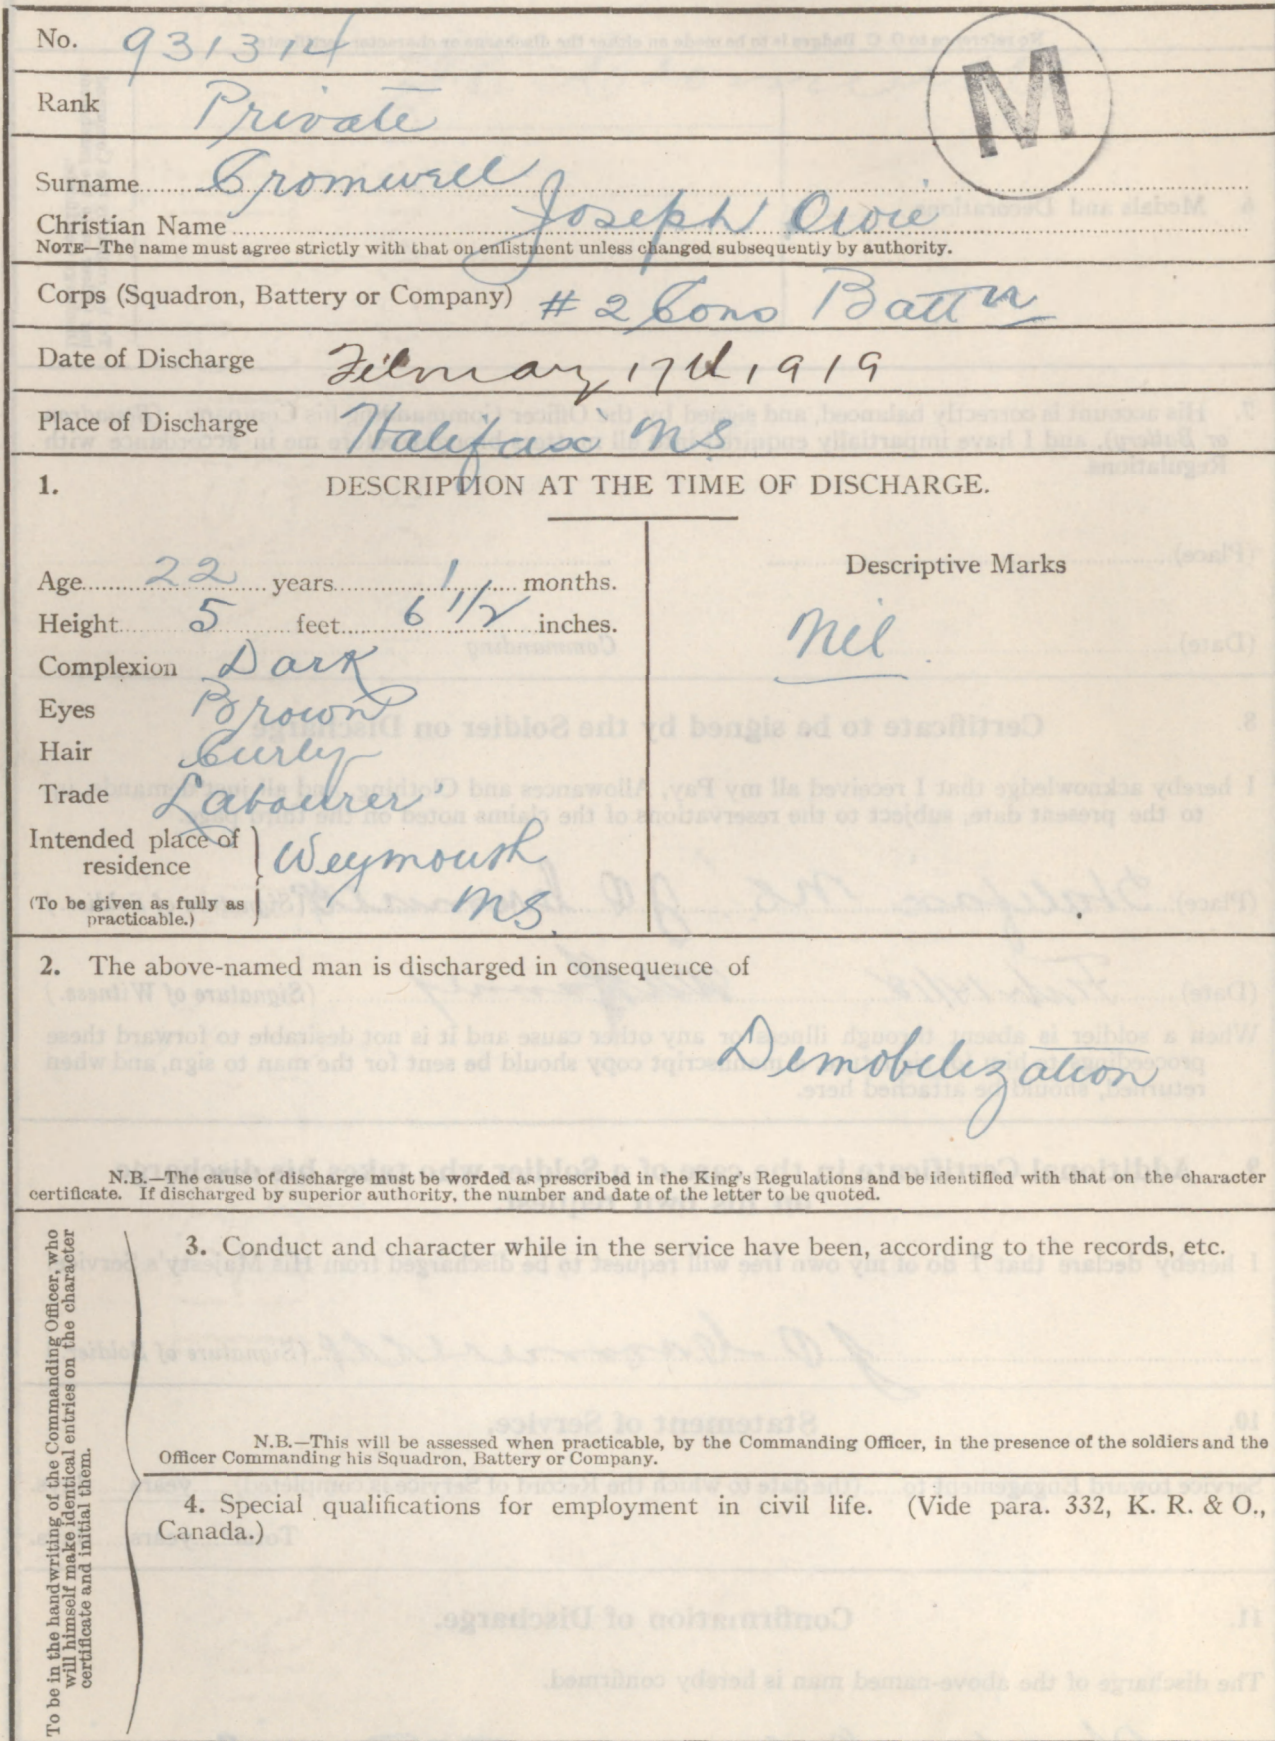 No. 931314
M
Rank Private
Surname Cromwell
Christian Name Joseph
NOTE—The name must agree strictly with that on enlistment unless changed subsequently by authority.
Corps (Squadron, Battery or Company) #2 Cons Battn
Date of Discharge February 17th, 1919
Place of Discharge Halifax NS
1. DESCRIPTION AT THE TIME OF DISCHARGE.
Age 22 years 1 months.
Height 5 feet 6 1/2 inches.
Complexion Dark
Eyes Brown
Hair Curly
Trade Labourer
Intended place of residence Weymouth
(To be given as fully as practicable.) NS.
Descriptive Marks
Nil
2. The above-named man is discharged in consequence of
Demobilization
N.B.—The cause of discharge must be worded as prescribed in the King's Regulations and be identified with that on the character
certificate. If discharged by superior authority, the number and date of the letter to be quoted.
To be in the handwriting of the Commanding Officer, who
will himself make identical entries on the character
certificate and initial them.
3. Conduct and character while in the service have been, according to the records, etc.
N.B.—This will be assessed when practicable, by the Commanding Officer, in the presence of the soldiers and the
Officer Commanding his Squadron, Battery or Company.
4. Special qualifications for employment in civil life. (Vide para. 332, K. R. & O.,
Canada.)